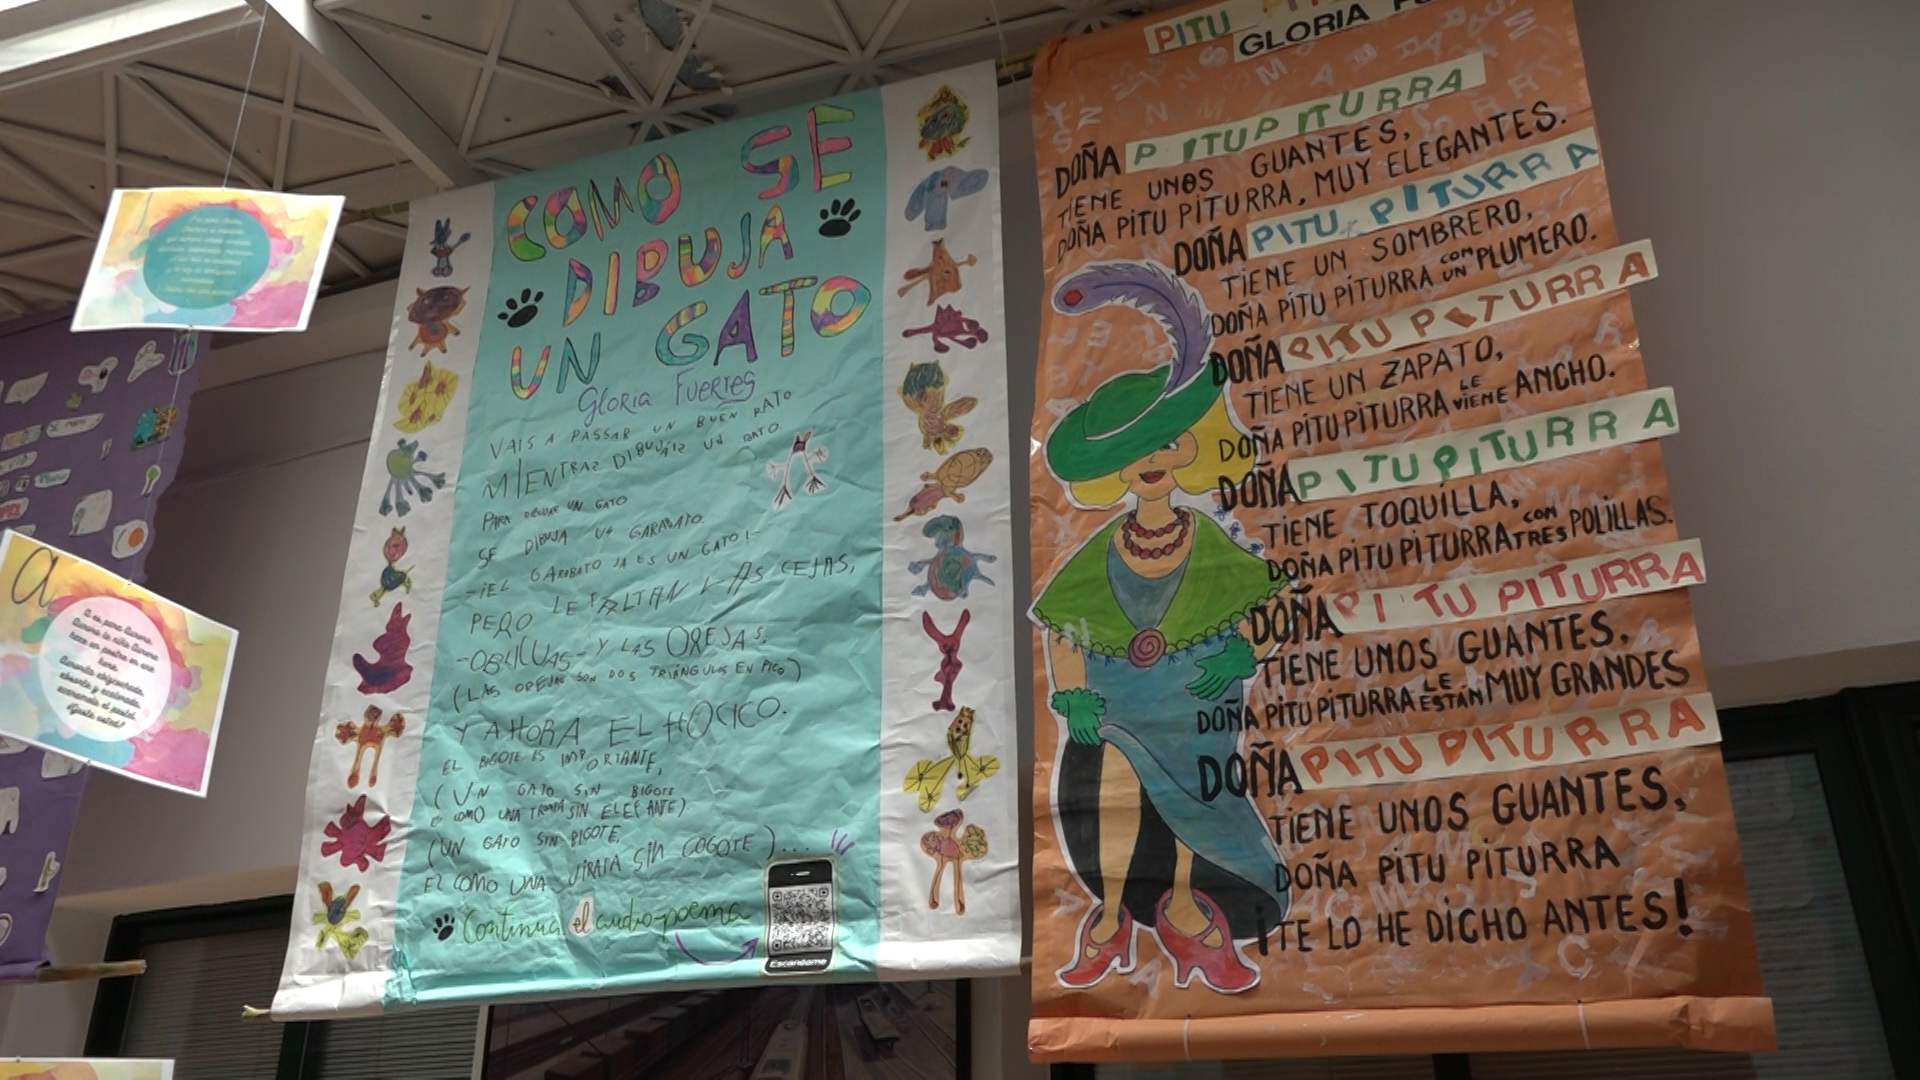 COMO SE
DIBUJA
UN GATO
Gloria Fuertes
VAIS A PASSAR UN BUEN RATO
MIENTRAS DIBUJÁIS UN GATO
PARA DIBUJAR UN GATO
SE DIBUJA UN GARABATO.
-¡EL GARABATO JA ES UN GATO!-
PERO LE FALTAN LAS CEJAS,
-OBLICUAS- Y LAS OREJAS.
(LAS OREJAS SON DOS TRIÁNGULOS EN PICO)
Y AHORA EL HOCICO.
EL BIGOTE ES IMPORTANTE,
(UN GATO SIN BIGOTE
ES COMO UNA TROMPA SIN ELEFANTE)
(UN GATO SIN BIGOTE,
EZ COMO UNA PIRATA SIN COGOTE)...
Continua el audio-poema
Escanéame
PITU
GLORIA
DOÑA PITUPITURRA
TIENE UNOS GUANTES,
DOÑA PITU PITURRA, MUY ELEGANTES.
DOÑA PITU PITURRA
TIENE UN SOMBRERO,
DOÑA PITU PITURRA CON UN PLUMERO.
DOÑA PITU PITURRA
TIENE UN ZAPATO,
DOÑA PITU PITURRA LE VIENE ANCHO.
DOÑA PITU PITURRA
TIENE TOQUILLA,
DOÑA PITU PITURRA CON TRES POLILLAS.
DOÑA PITU PITURRA
TIENE UNOS GUANTES,
DOÑA PITU PITURRA LE ESTÁN MUY GRANDES
DOÑA PITU PITURRA
TIENE UNOS GUANTES,
DOÑA PITU PITURRA
¡TE LO HE DICHO ANTES!
a
A es para Aurora,
Aurora la niña Aurora
hace un postre en una
hora.